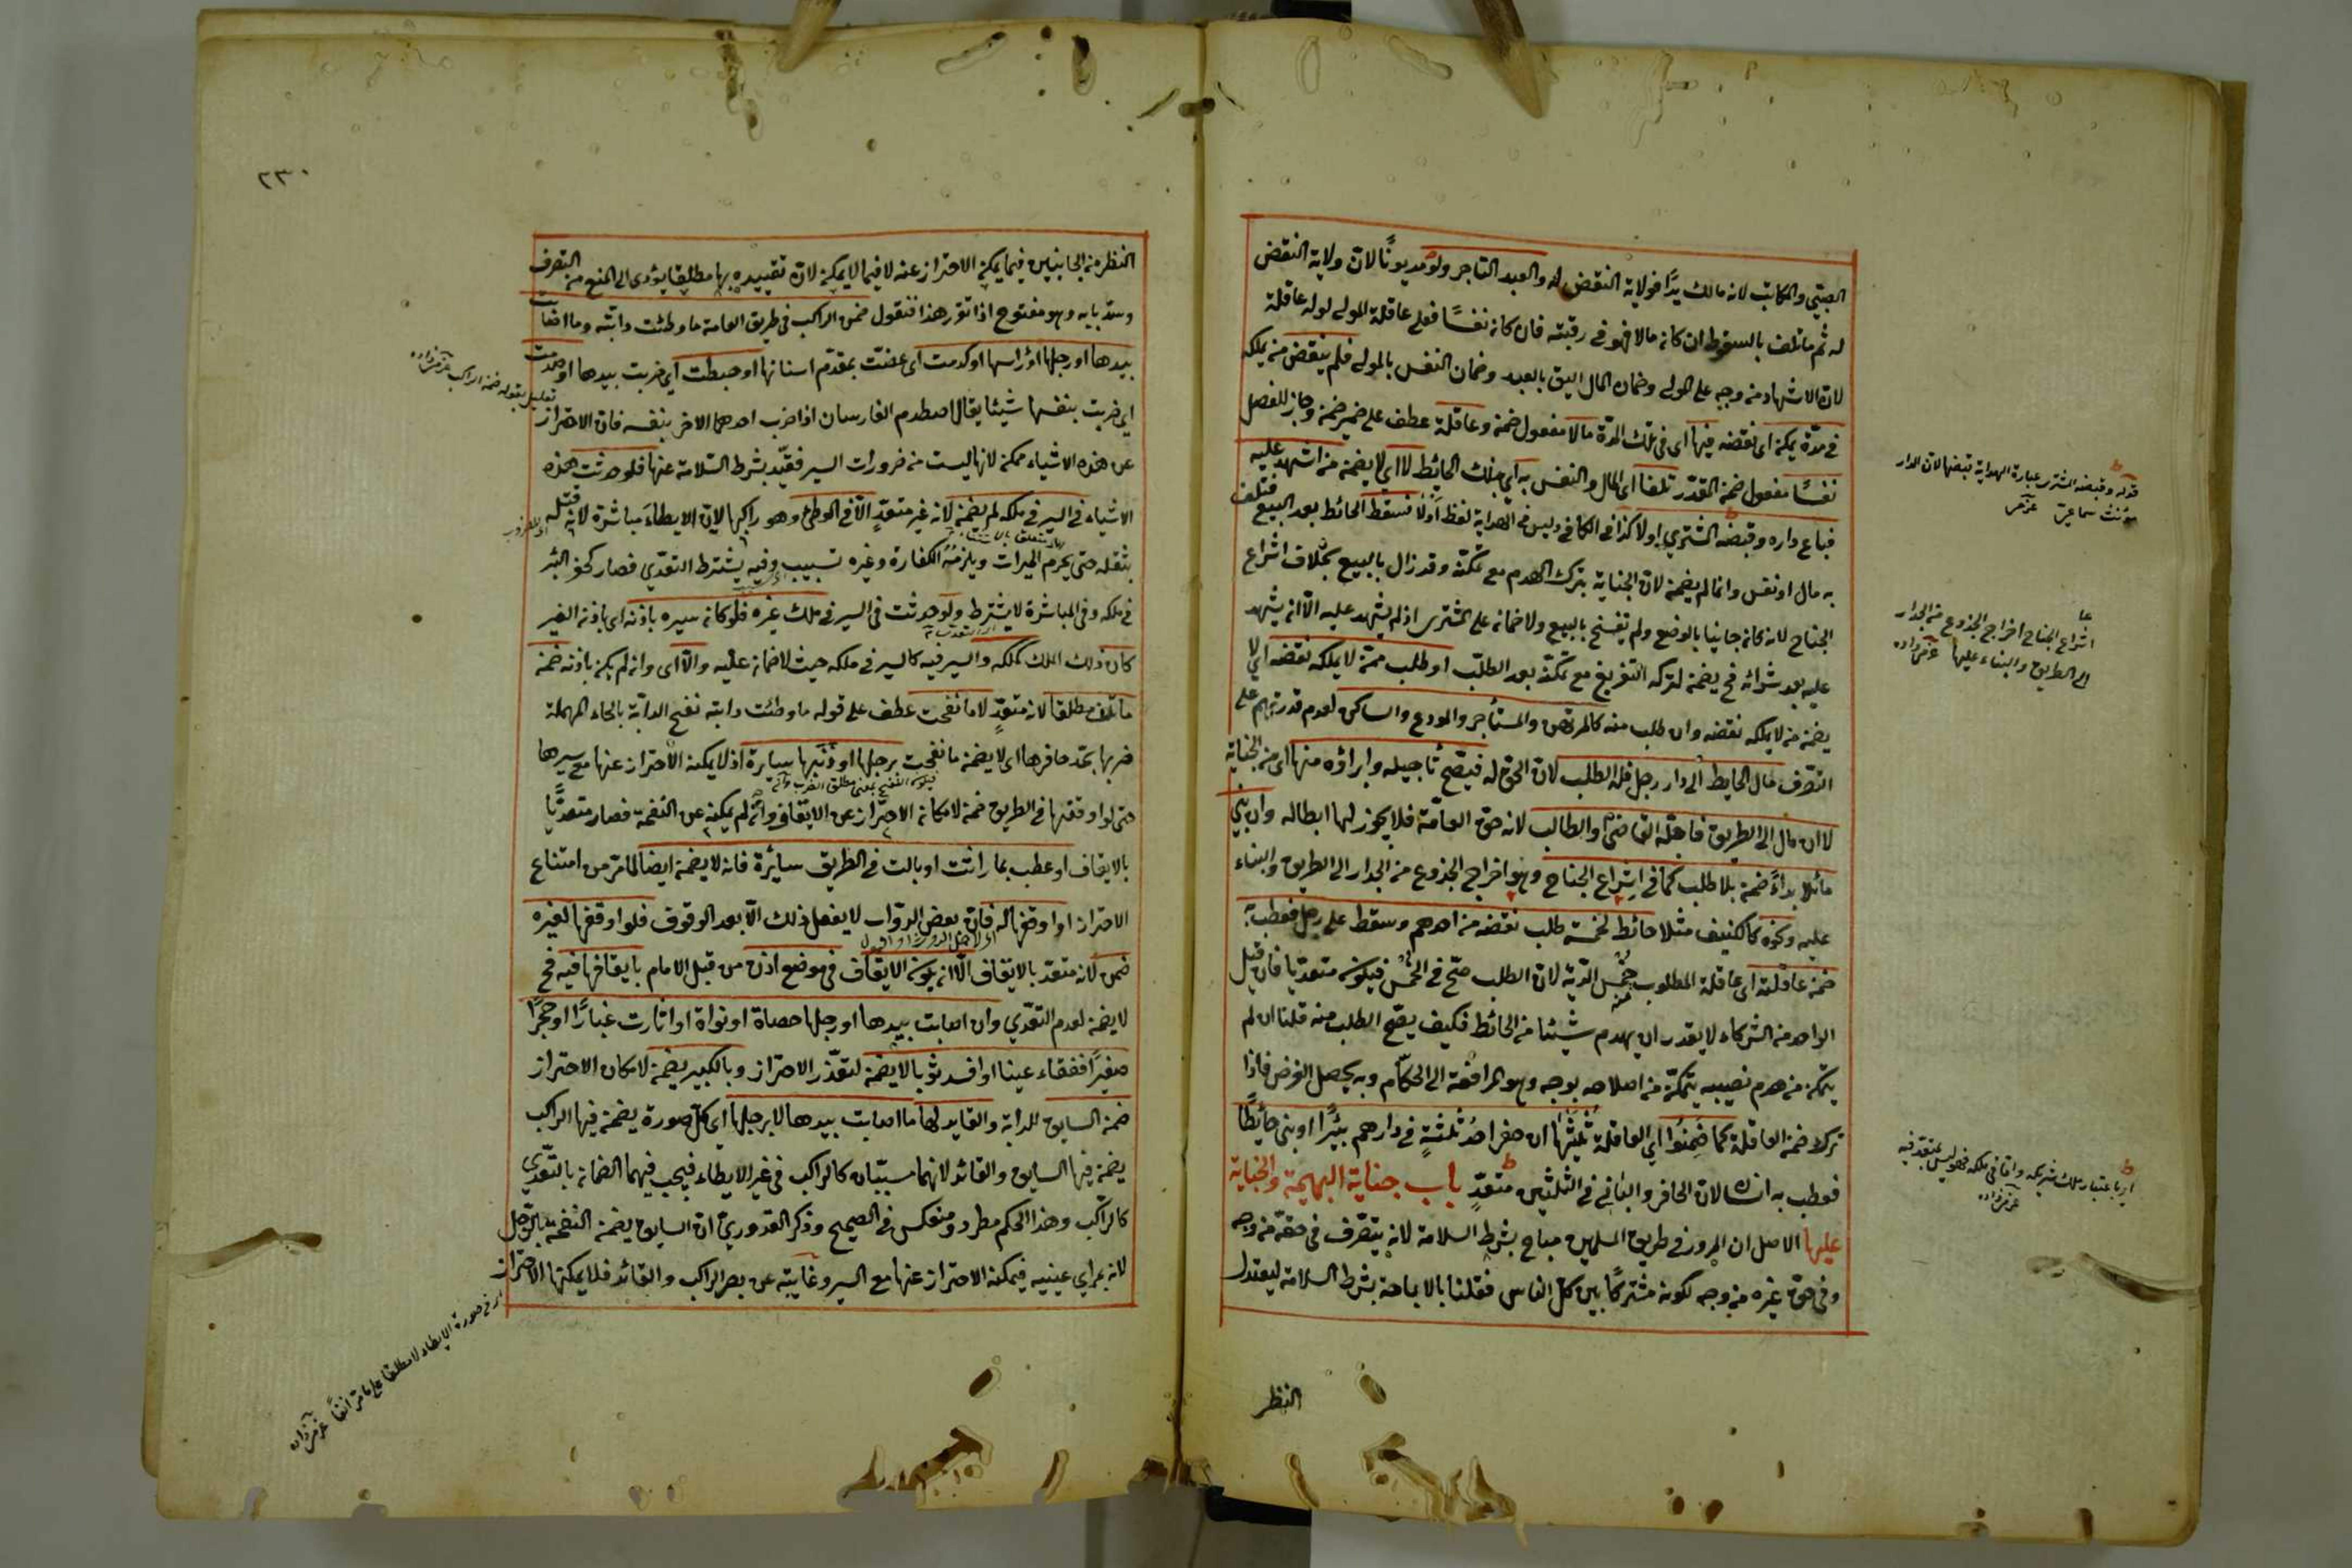 الصبي والمكاتب لانه مالك يدًا فولاية النقض له والعبد التاجر ولو مديونًا لان ولاية النقض
له ثم ما تلف بالسقوط ان كان مالا فهو في رقبته فان كان نفسًا فعلى عاقلة المولى لو له عاقلة
لان الاشهاد من وجه على المولى وضمان المال اليق بالعبد وضمان النفس بالمولى فلم ينقض من يملكه
في مدّة يمكن اى نقضه فيها اى في تلك المدة مالا مفعول ضمن وعاقلة عطف على ضمير ضمن وجاز للفصل
نفسًا مفعول ضمن المقدّر تلفا اى المال والنفس به اى بذلك الحائط لا اى لا يضمن من اشهد عليه
فباع داره وقبضه المشتري اولا كذا في الكافي وليس في الهداية لفظ اولًا فسقط الحائط بعد البيع فتلف
به مال او نفس وانما لم يضمن لان الجناية بترك الهدم مع تمكنه وقد زال بالبيع بخلاف اشراع
الجناح لانه كان جانيا بالوضع ولم ينفسخ بالبيع ولا ضمان على المشترى اذ لم يشهد عليه الّا ان يشهد
عليه بعد شرائه فح يضمن لتركه التفريغ مع تمكنه بعد الطلب او طلب ممن لا يملكه نقضه اى لا
يضمن من لا يملكه نقضه وان طلب منه كالمرتهن والمستأجر والمودع والساكن لعدم قدرتهم على
التصرف مال الحايط الى دار رجل فله الطلب لان الحق له فيصح تأجيله وابراؤه منها اى من الجناية
لا ان مال الى الطريق فاجله القاضي او الطالب لانه حق العامّة فلا يجوز لهما ابطاله وان بني
مائلا بداءً ضمن بلا طلب كما في اشراع الجناح وهو اخراج الجذوع من الجدار الى الطريق والبناء
عليه ونحوه كالكنيف مثلا حائط لخمسة طلب نقضه من احدهم وسقط على رجل فعطب به
ضمن عاقلته اى عاقلة المطلوب منه خمس الدية لان الطلب صحّ في الخمس فيكون متعديا فان قيل
الواحد من الشركاء لا يقدر ان يهدم شيئا من الحائط فكيف يصحّ الطلب منه قلنا ان لم
يتمكن من هدم نصيبه يتمكن من اصلاحه بوجه وهو المرافعة الى الحكّام وبه يحصل الغرض فاذا
ترك ضمن العاقلة كما ضمنوا اي العاقلة ثلثيها ان حفر احد ثلثة في دارهم بئرًا او بنى حائطًا
فعطب به انسان لان الحافر والباني في الثلثين متعدٍّ باب جناية البهيمة والجناية
عليها الاصل ان المرور في طريق المسلمين مباح بشرط السلامة لانه يتصرف في حقه من وجه
وفي حق غيره من وجه لكونه مشتركًا بين كل الناس فقلنا بالاباحة بشرط السلامة ليعتدل
النظر
قوله وقبضه المشتري عبارة الهداية قبضها لان الدار
مؤنث سماعي عزمى
اشراع الجناح اخراج الجذوع من الجدار
الى الطريق والبناء عليها عزمى زاده
اى باعتبار ملك شريكه واما في ملكه فهو ليس بمتعد فيه
عزمى زاده
٢٣٠
النظر من الجانبين فيما يمكن الاحتراز عنه لا فيما لا يمكن لان تقييده بها مطلقا يؤدى الى المنع من التصرف
وسدّ بابه وهو مفتوح اذا تقرر هذا فنقول ضمن الراكب في طريق العامة ما وطئت دابته وما اصابت
بيدها او رجلها او رأسها او كدمت اى عضّت بمقدّم اسنانها او خبطت اي ضربت بيدها او صدمت
اي ضربت بنفسها شيئا يقال اصطدم الفارسان اذا ضرب احدهما الاخر بنفسه فان الاحتراز
عن هذه الاشياء ممكن لانها ليست من ضرورات السير فقيّد بشرط السّلامة عنها فلو حدثت هذه
الاشياء في السير في ملكه لم يضمن لانه غير متعدٍّ الّا في الوطئ وهو راكبها لان الايطاء مباشرة لانه قتله
بثقله حتى يحرم الميراث ويلزمه الكفارة وغيره تسبيب وفيه يشترط التعدّي فصار كحفر البئر
في ملكه وفي المباشرة لا يشترط ولو حدثت في السير في ملك غيره فلو كان سيره باذنه اى باذن الغير
كان ذلك الملك كملكه والسير فيه كالسير في ملكه حيث لا ضمان عليه والّا اى وان لم يكن باذنه ضمن
ما تلف مطلقا لانه متعدٍّ لا ما نفحت عطف على قوله ما وطئت دابته نفح الدابّة بالحاء المهملة
ضربها بحد حافرها اى لا يضمن ما نفحت برجلها او ذنبها سايرة اذ لا يمكنه الاحتراز عنها مع سيرها
حتى لو اوقفها في الطريق ضمن لامكان الاحتراز عن الايقاف وان لم يمكن عن النفحة فصار متعديًا
بالايقاف او عطب بما راثت او بالت في الطريق سائرة فانه لا يضمن ايضا لما مر من امتناع
الاحتراز او اوقفها له فان بعض الدواب لا يفعل ذلك الّا بعد الوقوف فلو اوقفها لغيره
ضمن لانه متعد بالايقاف الّا ان يكون الايقاف في موضع اذن من قبل الامام بايقافها فيه فح
لا يضمن لعدم التعدّي وان اصابت بيدها او رجلها حصاة او نواة او اثارت غبارًا او حجرًا
صغيرًا ففقاء عينا او افسد ثوبا لا يضمن لتعذّر الاحتراز وبالكبير يضمن لامكان الاحتراز
ضمن السايق للدابة والقايد لها ما اصابت بيدها لا برجلها اى كل صورة يضمن فيها الراكب
يضمن فيها السايق والقائد لانهما مسببان كالراكب في غير الايطاء فيجب فيهما الضمان بالتعدّي
كالراكب وهذا الحكم مطرد ومنعكس في الصحيح وذكر القدوري ان السايق يضمن النفحة بالرجل
لانه بمراي عينيه فيمكنه الاحتراز عنها مع السير وغايبة عن بصر الراكب والقائد فلا يمكنهما الاحتراز
تعليل بقوله ضمن الراكب عزمى زاده
اى في صورة الايطاء لا مطلقا على ما مر انفًا عزمى زاده